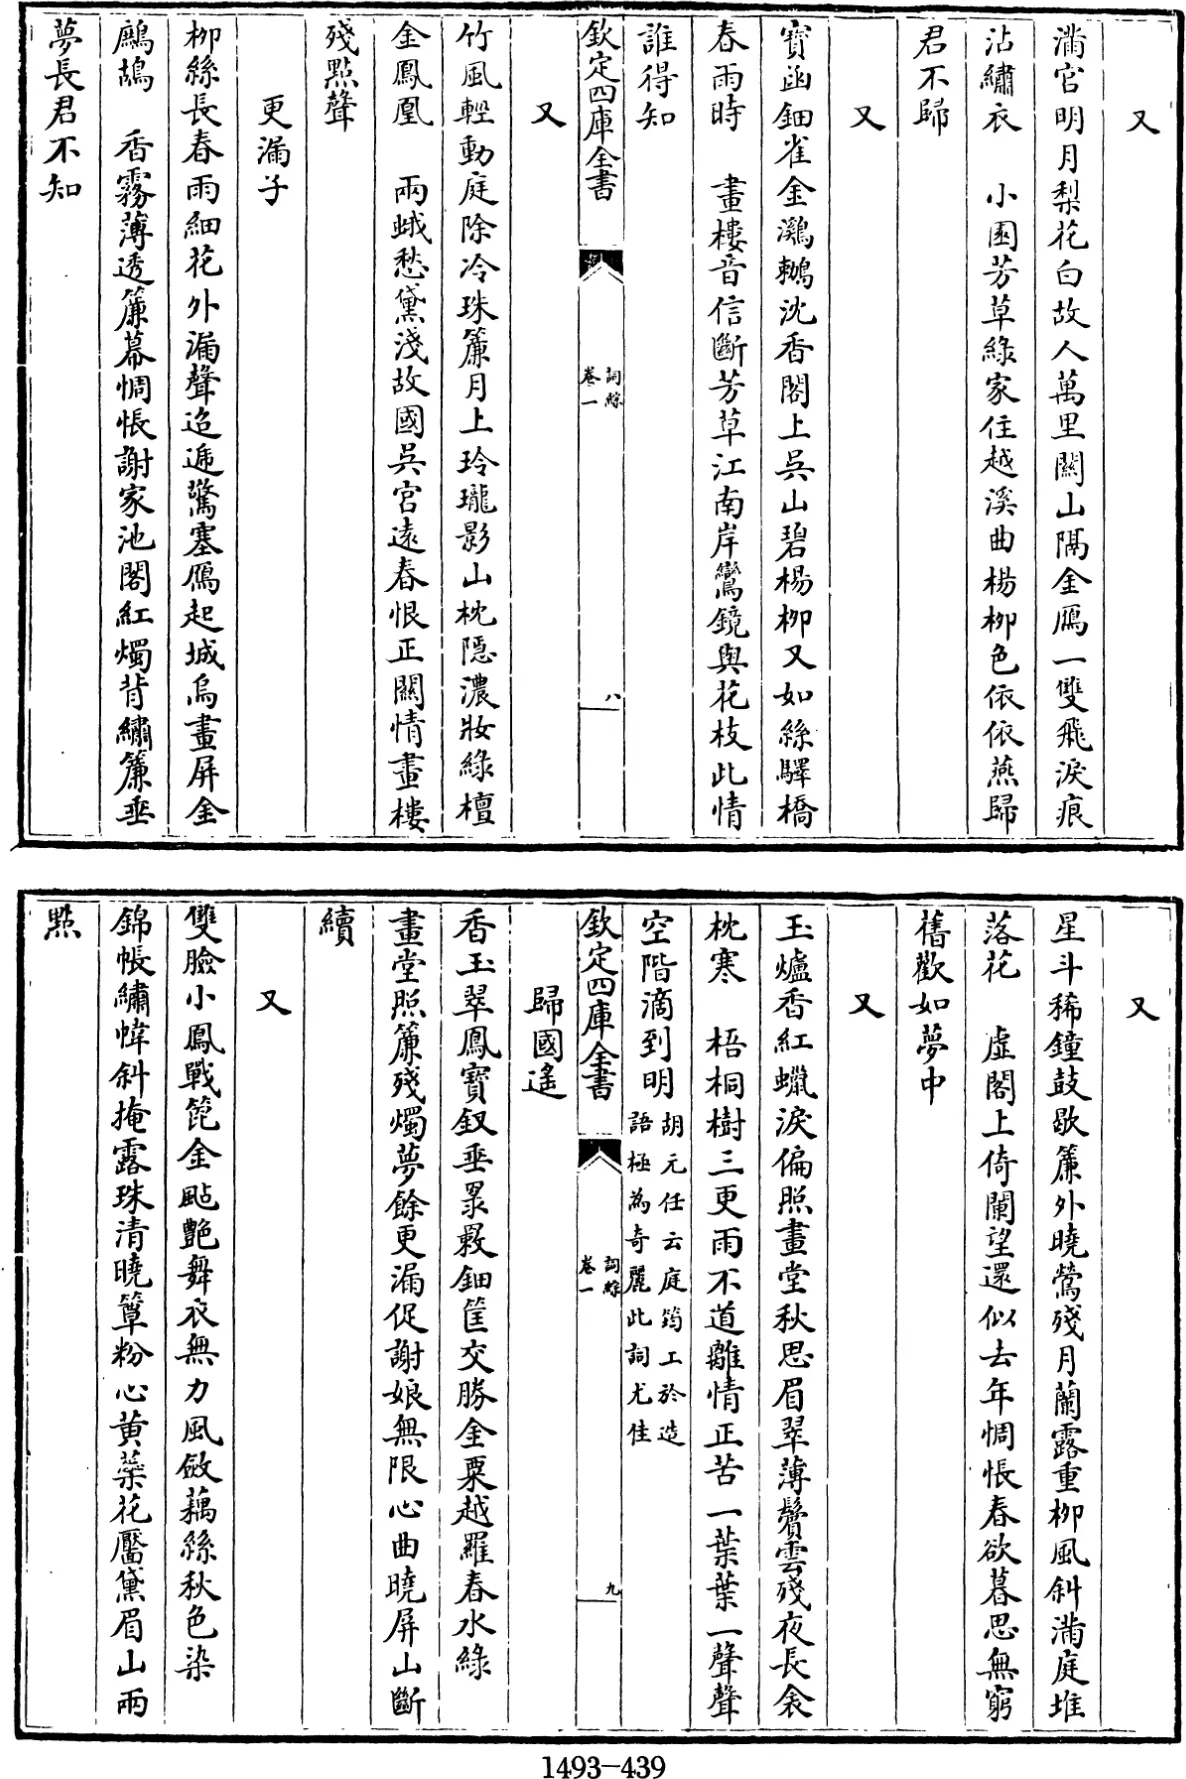 又
滿宫明月梨花白故人萬里關山隔金鴈一雙飛淚痕
沾繡衣　小園芳草綠家住越溪曲楊柳色依依燕歸
君不歸
又
寳函鈿雀金鸂鶒沈香閣上吳山碧楊柳又如絲驛橋
春雨時　畫樓音信斷芳草江南岸鸞鏡與花枝此情
誰得知
欽定四庫全書
詞綜
卷一
八
又
竹風輕動庭除冷珠簾月上玲瓏影山枕隱濃妝綠檀
金鳳凰　兩蛾愁黛淺故國吳宫逺春恨正關情畫樓
殘點聲
更漏子
柳絲長春雨細花外漏聲迢遞驚塞鴈起城烏畫屏金
鷓鴣　香霧薄透簾幕惆悵謝家池閣紅燭背繡簾垂
夢長君不知
又
星斗稀鐘鼓歇簾外曉鶯殘月蘭露重柳風斜滿庭堆
落花　虛閣上倚闌望還似去年惆悵春欲暮思無窮
舊歡如夢中
又
玉爐香紅蠟淚偏照畫堂秋思眉翠薄鬢雲殘夜長衾
枕寒　梧桐樹三更雨不道離情正苦一葉葉一聲聲
空階滴到明
胡元任云庭筠工於造
語極為奇麗此詞尤佳
欽定四庫全書
詞綜
卷一
九
歸國遙
香玉翠鳳寳釵垂㒔敊鈿筐交勝金粟越羅春水綠
畫堂照簾殘燭夢餘更漏促謝娘無限心曲曉屏山斷
續
又
雙臉小鳳戰篦金颭艷舞衣無力風斂藕絲秋色染
錦帳繡幃斜掩露珠清曉簟粉心黄蘂花靨黛眉山兩
點
1493—439